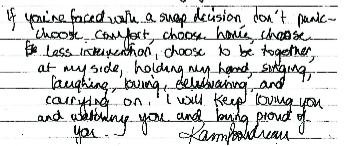 If you're faced with a snap decision, don't panic-
choose comfort, choose home, choose
less intervention, choose to be together,
at my side, holding my hand, singing,
laughing, loving, celebrating, and
carrying on. I will keep loving you
and watching you and being proud of
you.